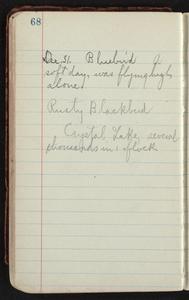 68
Dec 31. Bluebird 1.
soft day, was flying high
alone.
Rusty Blackbird
Crystal Lake, several
thousands in 1 flock